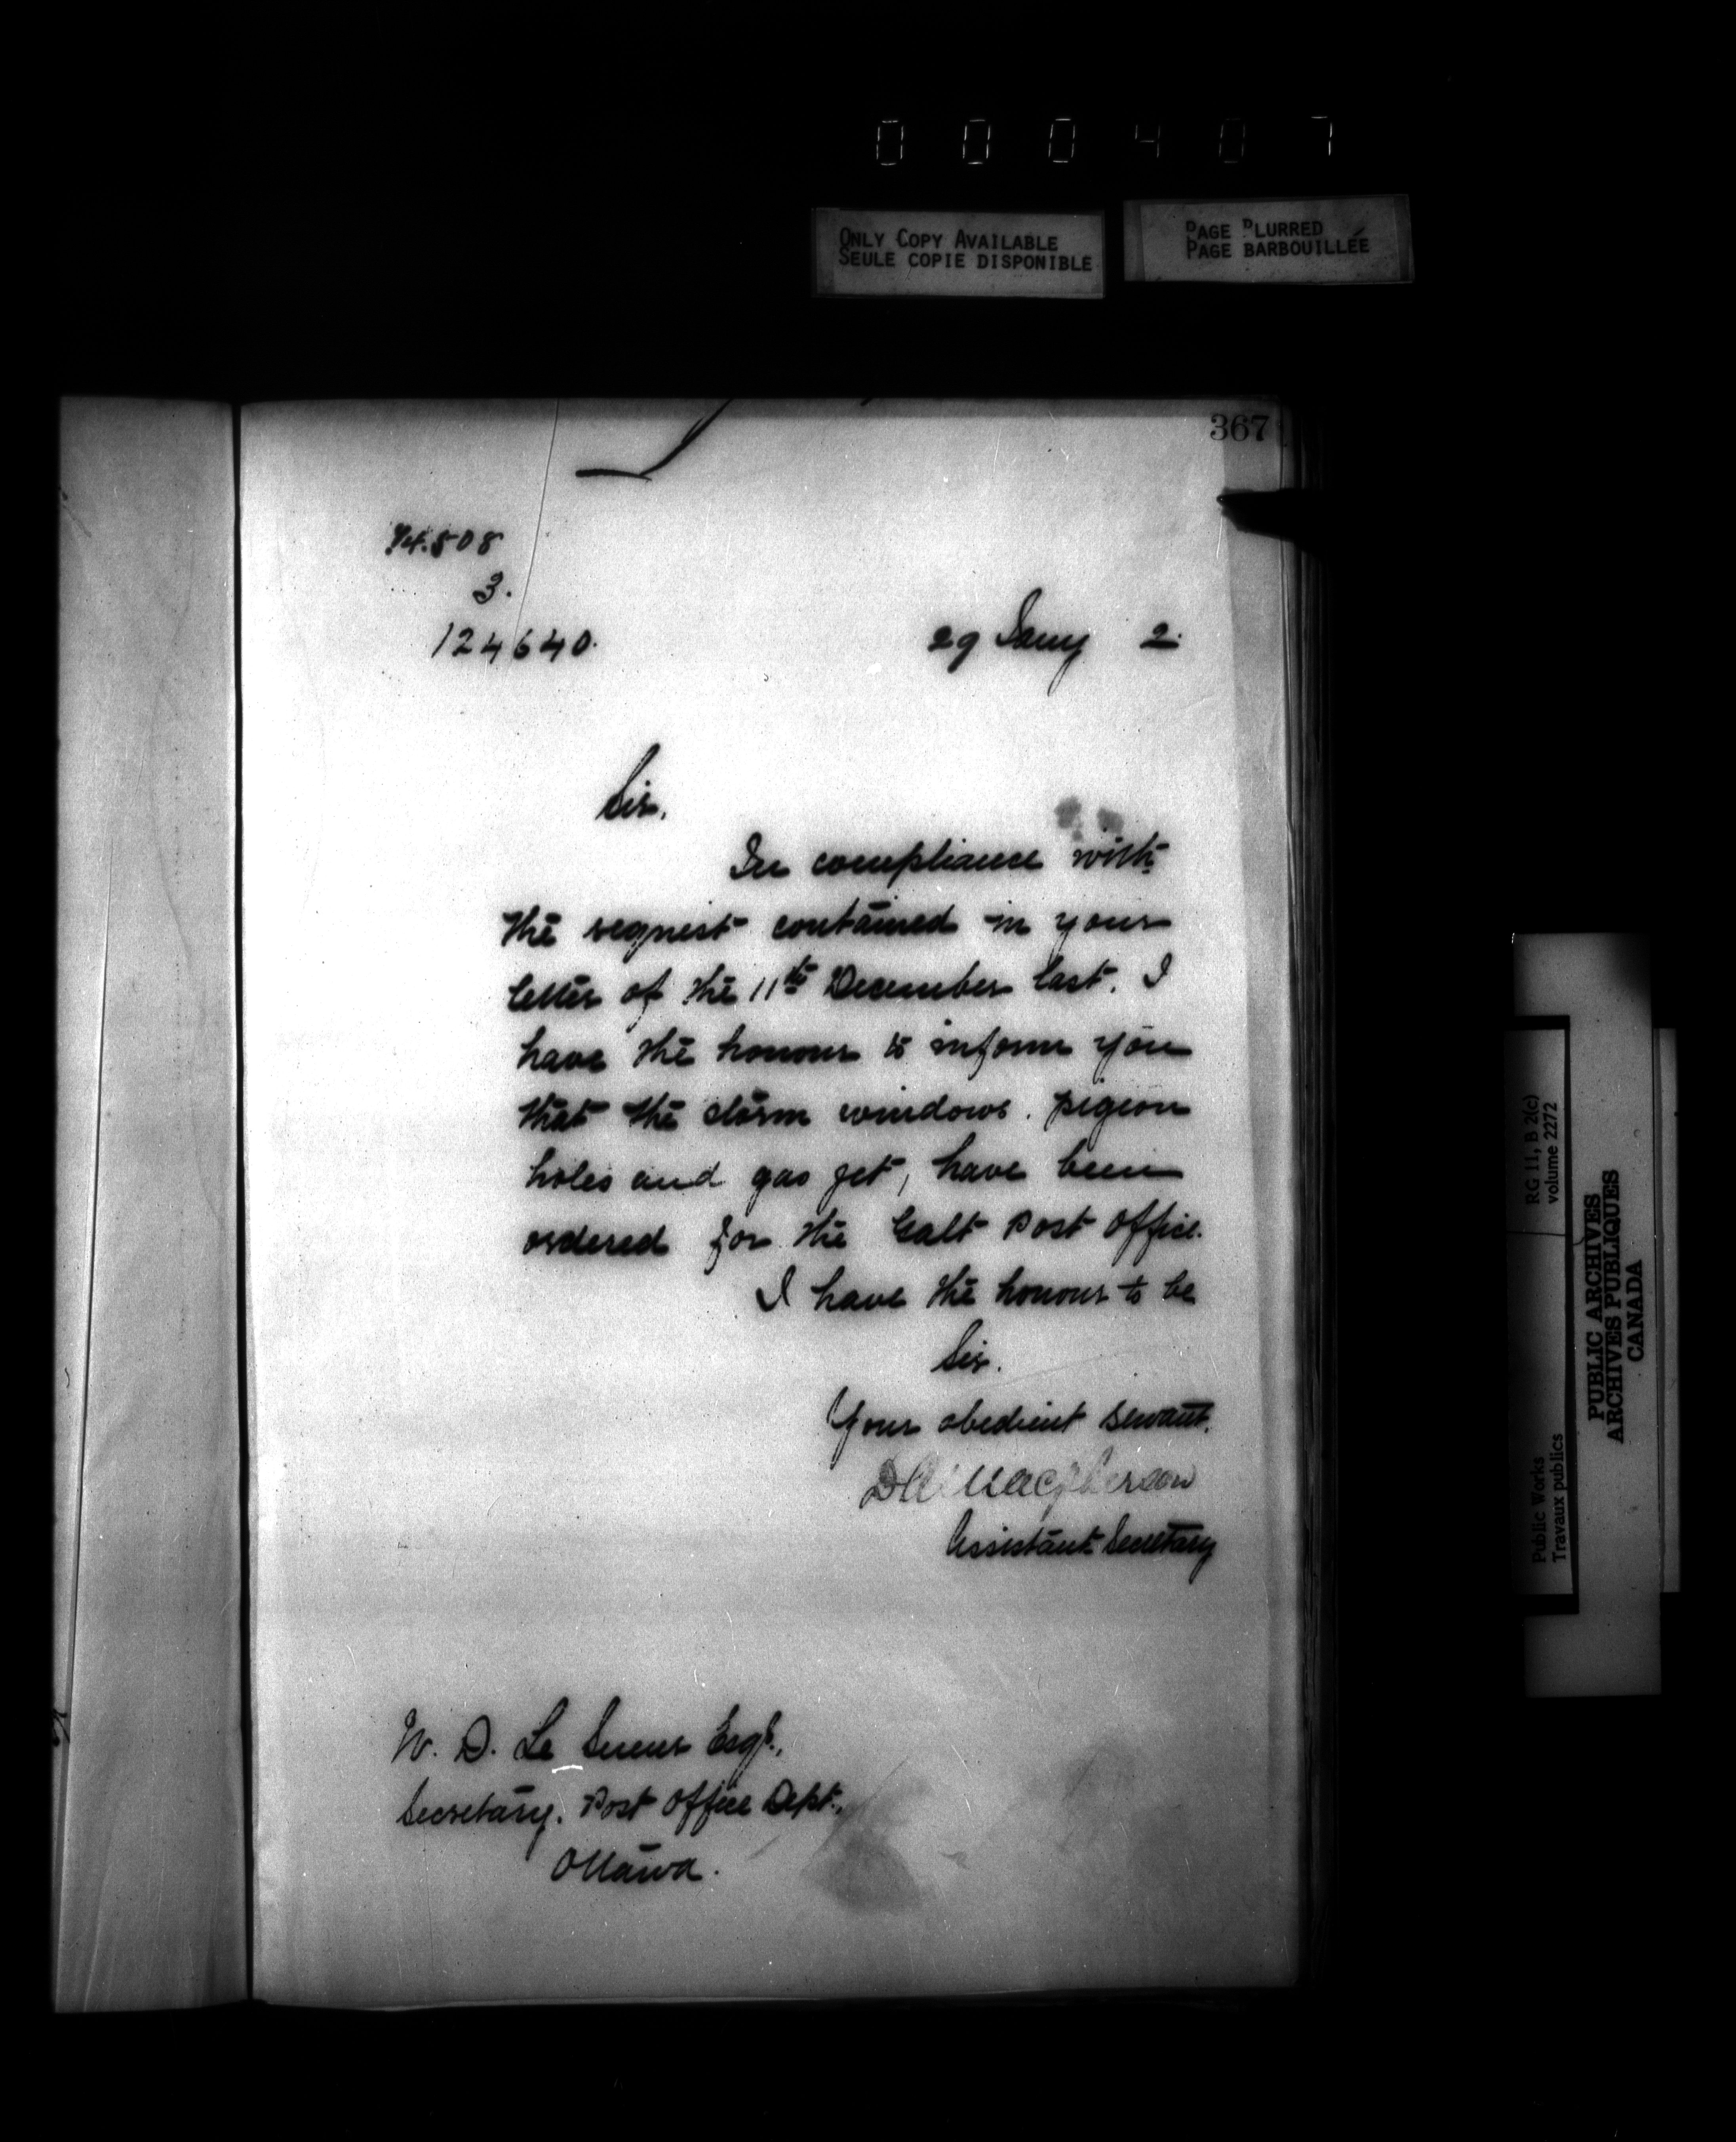 000407
ONLY COPY AVAILABLE
SEULE COPIE DISPONIBLE
PAGE BLURRED
PAGE BARBOUILLÉE
367
74.508
3.
124640.
29 Jany 2.
Sir,
In compliance with
the request contained in your
letter of the 11th December last. I
have the honour to inform you
that the storm windows. pigeon
holes and gas jet, have been
ordered for the Galt Post Office.
I have the honour to be
Sir.
Your obedient servant.
D A Macpherson
Assistant Secretary
W. D. Le Sueur Esqr.,
Secretary. Post Office Dept.,
Ottawa.
RG 11, B 2(c)
volume 2272
Public Works
Travaux publics
PUBLIC ARCHIVES
ARCHIVES PUBLIQUES
CANADA